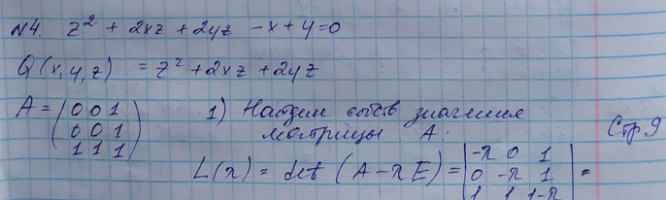 №4. z² + 2xz + 2yz - x + y = 0
Q(x,y,z) = z² + 2xz + 2yz
A = (0 0 1
0 0 1
1 1 1)
1) Найдем собств значения
матрицы A:
L(λ) = det (A - λE) = |-λ 0 1
0 -λ 1
1 1 1-λ| =
Стр 9